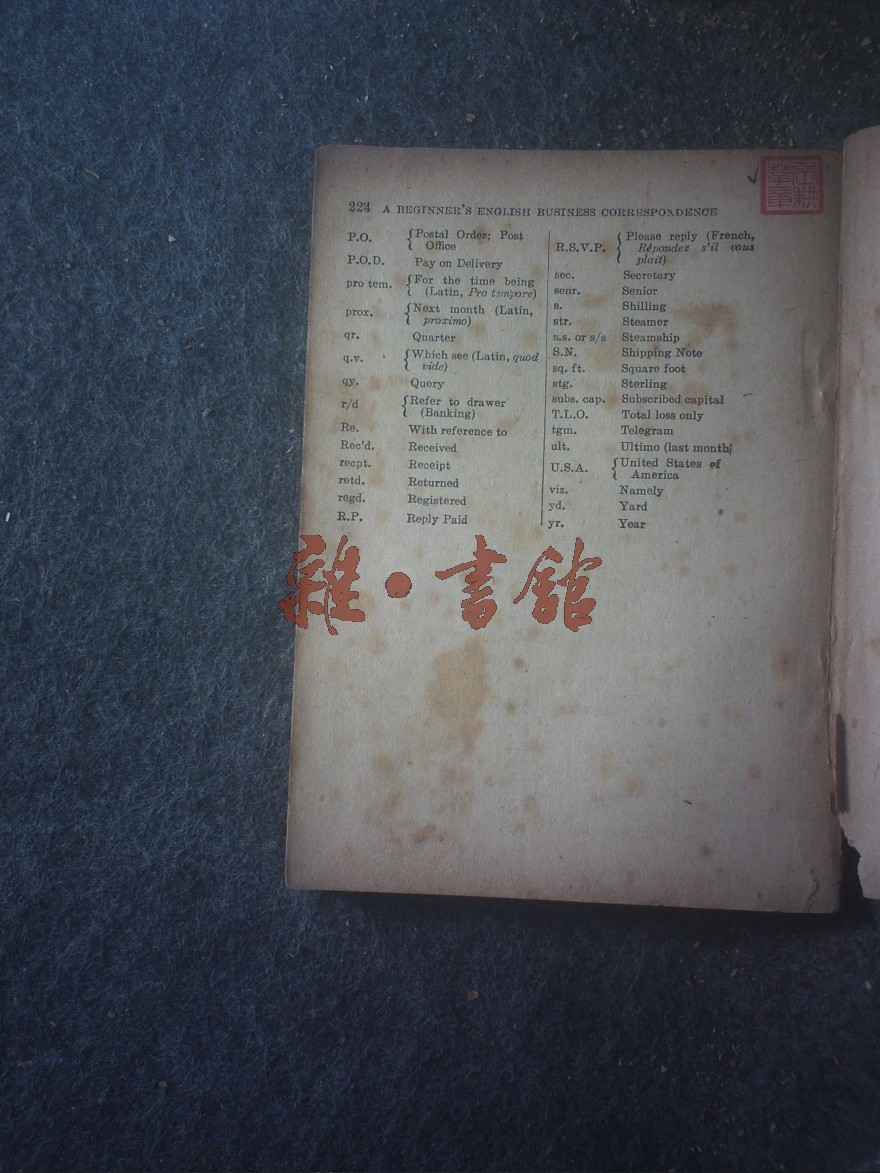 224 A BEGINNER'S ENGLISH BUSINESS CORRESPONDENCE
P.O. Postal Order; Post
Office
P.O.D. Pay on Delivery
pro tem. For the time being
(Latin, Pro tempore)
prox. Next month (Latin,
proximo)
qr. Quarter
q.v. Which see (Latin, quod
vide)
qy. Query
r/d Refer to drawer
(Banking)
Re. With reference to
Rec'd. Received
recpt. Receipt
retd. Returned
regd. Registered
R.P. Reply Paid
R.S.V.P. Please reply (French,
Répondez s'il vous
plait)
sec. Secretary
senr. Senior
s. Shilling
str. Steamer
s.s. or s/s Steamship
S.N. Shipping Note
sq. ft. Square foot
stg. Sterling
subs. cap. Subscribed capital
T.L.O. Total loss only
tgm. Telegram
ult. Ultimo (last month)
U.S.A. United States of
America
viz. Namely
yd. Yard
yr. Year
雜·書館